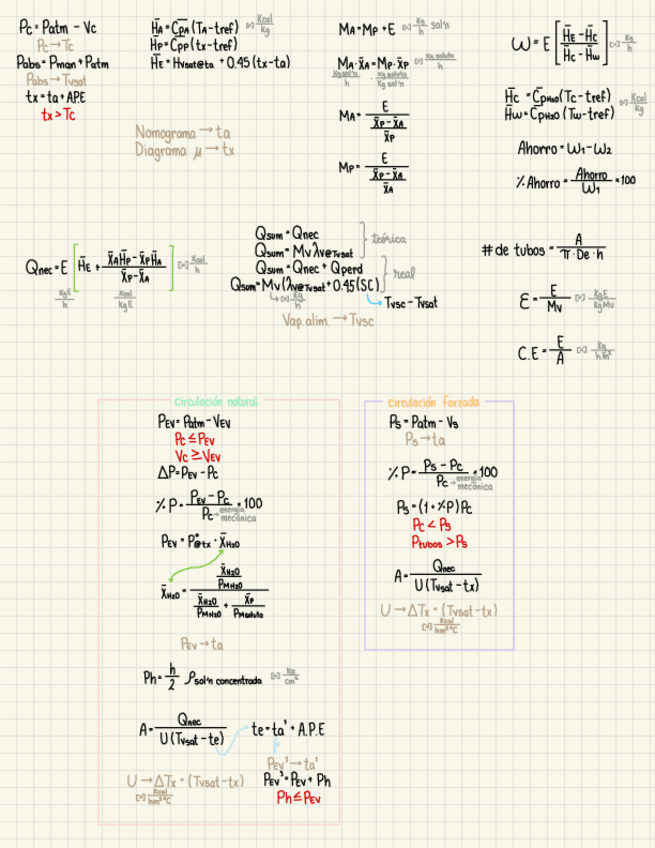 Pc = Patm - Vc
Pc → Tc
Pabs = Pman + Patm
Pabs → Tvsat
tx = ta + A.P.E
tx > Tc
H̄A = C̄pA (TA - tref) [=] Kcal/Kg
H̄p = C̄pp (tx - tref)
H̄E = Hvsat@ta + 0.45 (tx - ta)
Nomograma → ta
Diagrama μ → tx
MA = Mp + E [=] Kg/h sol'n
MA · x̄A = Mp · x̄p [=] Kg soluto/h
Kg sol'n/h · Kg soluto/Kg sol'n
MA = E / ((x̄p - x̄A)/x̄p)
Mp = E / ((x̄p - x̄A)/x̄A)
W = E [(H̄E - H̄c)/(H̄c - H̄w)] [=] Kg/h
H̄c = C̄pH2O (Tc - tref) [=] Kcal/Kg
H̄w = C̄pH2O (Tw - tref)
Ahorro = W1 - W2
% Ahorro = Ahorro/W1 * 100
Qnec = E [H̄E + (x̄A H̄p - x̄p H̄A)/(x̄p - x̄A)] [=] Kcal/h
KgE/h Kcal/KgE
Qsum = Qnec
Qsum = Mv λv@Tvsat
teórica
Qsum = Qnec + Qperd
Qsum = Mv (λv@Tvsat + 0.45 (SC))
real
[=] Kg/h
Tvsc - Tvsat
Vap. alim. → Tvsc
# de tubos = A / (π · De · h)
Ɛ = E/Mv [=] KgE/KgMv
C.E = E/A [=] Kg/hm²
circulación natural
PEV = Patm - VEV
Pc ≤ PEV
Vc ≥ VEV
ΔP = PEV - Pc
% P = (PEV - Pc)/Pc * 100
energía mecánica
PEV = P°@tx · x̄H2O
x̄H2O = (x̄H2O/PMH2O) / (x̄H2O/PMH2O + x̄p/PMsoluto)
PEV → ta
Ph = h/2 ρsol'n concentrada [=] Kg/cm²
A = Qnec / (U (Tvsat - te))
te = ta' + A.P.E
PEV' → ta'
U → ΔTx = (Tvsat - tx)
[=] Kcal/hm²°C
PEV' = PEV + Ph
Ph ≤ PEV
circulación forzada
Ps = Patm - Vs
Ps → ta
% P = (Ps - Pc)/Pc * 100
energía mecánica
Ps = (1 + %P) Pc
Pc < Ps
Ptubos > Ps
A = Qnec / (U (Tvsat - tx))
U → ΔTx = (Tvsat - tx)
[=] Kcal/hm²°C